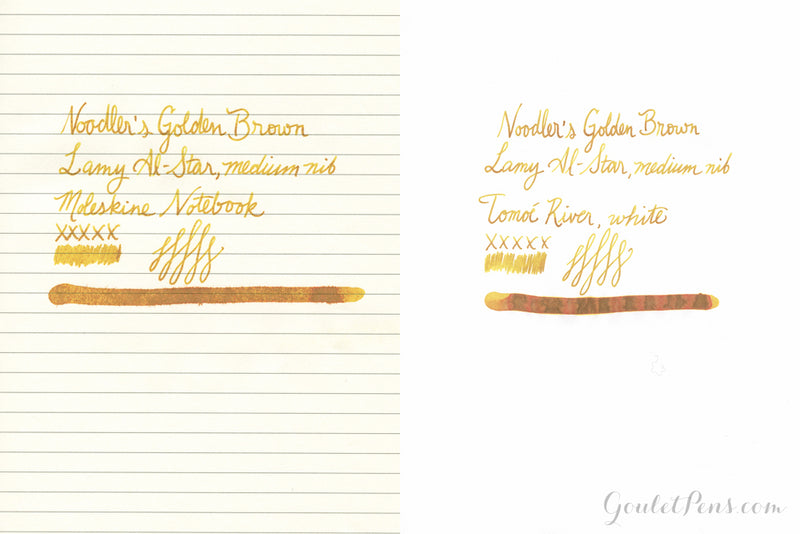 Noodler's Golden Brown
Lamy Al-Star, medium nib
Moleskine Notebook
XXXXX
Noodler's Golden Brown
Lamy Al-Star, medium nib
Tomoé River, white
XXXXX
GouletPens.com